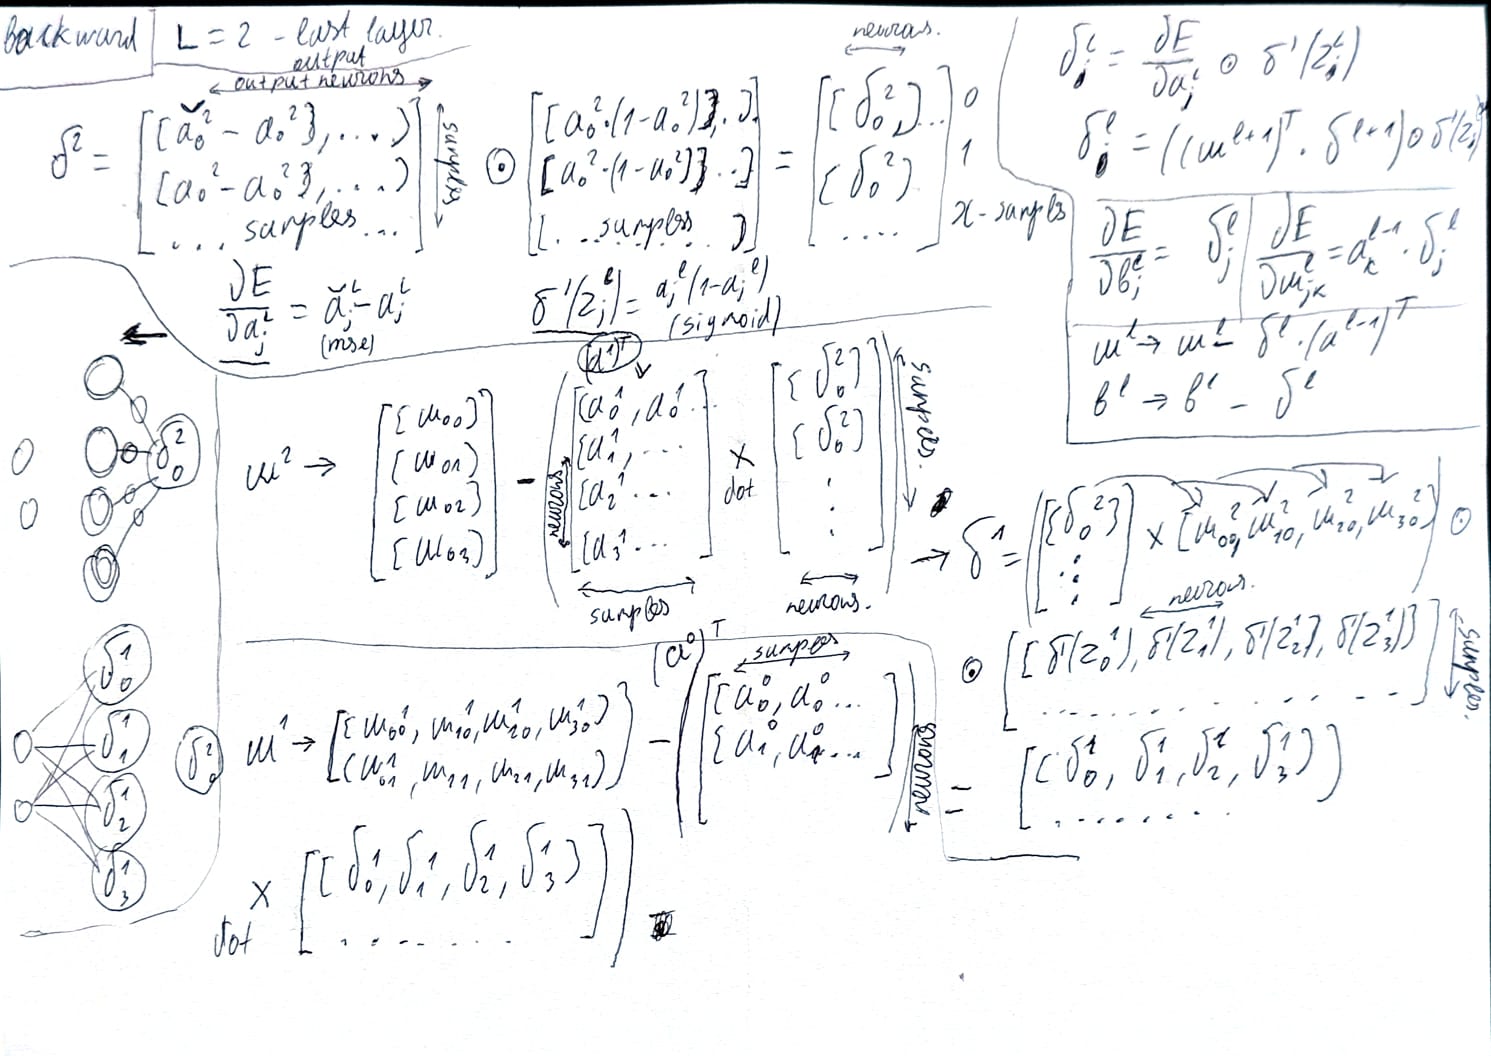 Backward
L = 2 - last layer.
output
output neurons
δ² = [[ă₀² - a₀²], ....]
[a₀² - a₀²], ....]
... samples ...]
samples
⊙ [[a₀²·(1-a₀²)], ..]
[a₀²·(1-a₀²)] ..]
[... samples ...]
= [[δ₀², ]...
[δ₀²]
....]
neurons.
0
1
x - samples
∂E/∂aⱼᴸ = ăⱼᴸ - aⱼᴸ
(mse)
δ'(zⱼᴸ) = aⱼᴸ(1-aⱼᴸ)
(sigmoid)
δⱼᴸ = ∂E/∂aⱼᴸ ⊙ δ'(zⱼᴸ)
δˡ = ((wˡ⁺¹)ᵀ · δˡ⁺¹) ⊙ δ'(zⱼˡ)
∂E/∂bⱼˡ = δⱼˡ | ∂E/∂wⱼₖˡ = aₖˡ⁻¹ · δⱼˡ
wˡ → wˡ - δˡ·(aˡ⁻¹)ᵀ
bˡ → bˡ - δˡ
δ₀²
w² → [[w₀₀]
[w₀₁]
[w₀₂]
[w₀₃]]
-
(a¹)ᵀ
([[a₀¹, a₀¹...
[a₁¹, ...
[a₂¹ ...
[a₃¹ ...]
neurons
samples
x
dot
[[δ₀²]
[δ₀²]
...])
samples.
neurons.
→ δ¹ = ([[δ₀²]
...] x [w₀₀², w₁₀², w₂₀², w₃₀²]) ⊙
neurons.
⊙ [[δ'(z₀¹), δ'(z₁¹), δ'(z₂¹), δ'(z₃¹)]
..........]
samples.
= [[δ₀¹, δ₁¹, δ₂¹, δ₃¹]
........
δ₀¹
δ₁¹
δ₂¹
δ₃¹
δ₀²
w¹ → [[w₀₀¹, w₁₀¹, w₂₀¹, w₃₀¹]
[w₀₁¹, w₁₁, w₂₁, w₃₁]]
-
(a⁰)ᵀ
samples
([[a₀⁰, a₀⁰...
[a₁⁰, a₁⁰...]
neurons
x
dot
[[δ₀¹, δ₁¹, δ₂¹, δ₃¹]
.......])